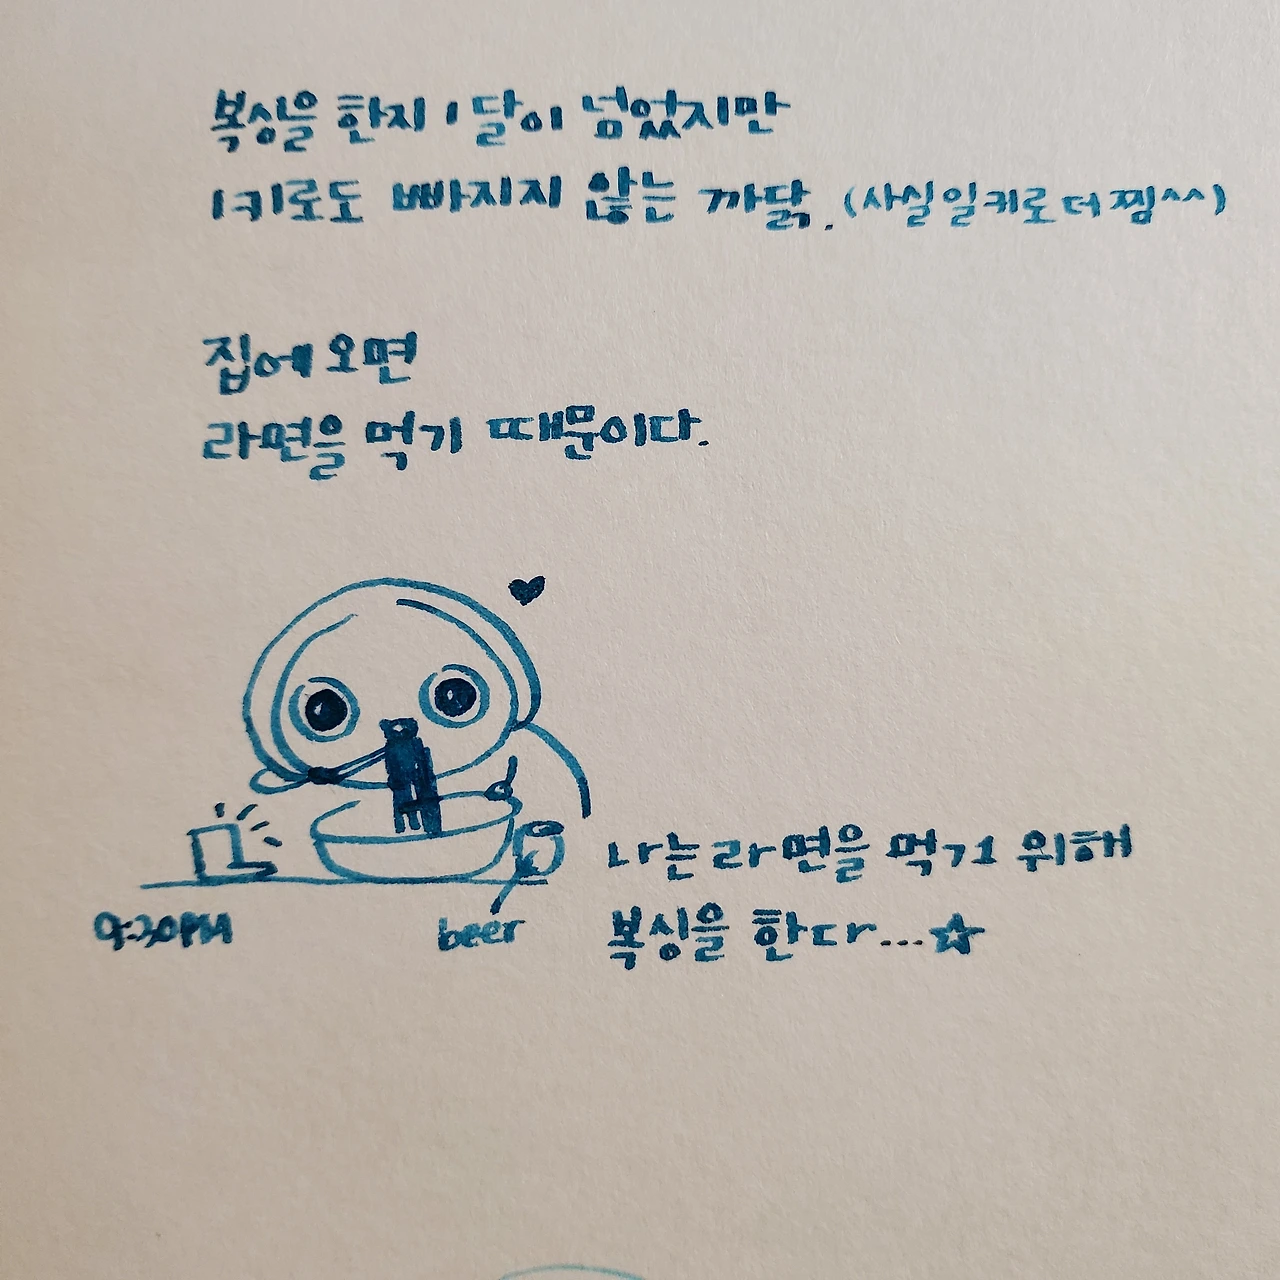 복싱을 한지 1달이 넘었지만
1키로도 빠지지 않는 까닭. (사실 일키로 더 찜^^)
집에 오면
라면을 먹기 때문이다.
9:30PM
beer
나는 라면을 먹기 위해
복싱을 한다...☆